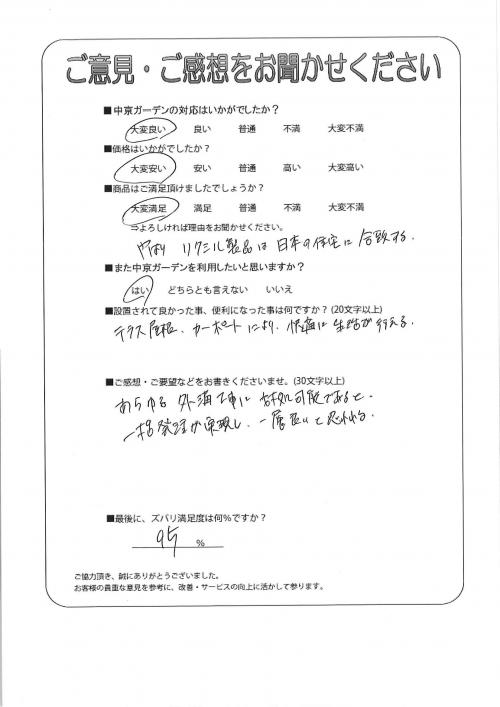 ご意見・ご感想をお聞かせください
■中京ガーデンの対応はいかがでしたか？
大変良い 良い 普通 不満 大変不満
■価格はいかがでしたか？
大変安い 安い 普通 高い 大変高い
■商品はご満足頂けましたでしょうか？
大変満足 満足 普通 不満 大変不満
⇒よろしければ理由をお聞かせください。
やはり リクシル製品は 日本の住宅に 合致する.
■また中京ガーデンを利用したいと思いますか？
はい どちらとも言えない いいえ
■設置されて良かった事、便利になった事は何ですか？(20文字以上)
テラス屋根、カーポートにより、快適に生活が行える.
■ご感想・ご要望などをお書きくださいませ。(30文字以上)
あらゆる 外溝工事に 対処可能であると、
一括発注が実現し、一層良いと思われる.
■最後に、ズバリ満足度は何％ですか？
95 %
ご協力頂き、誠にありがとうございました。
お客様の貴重な意見を参考に、改善・サービスの向上に活かして参ります。